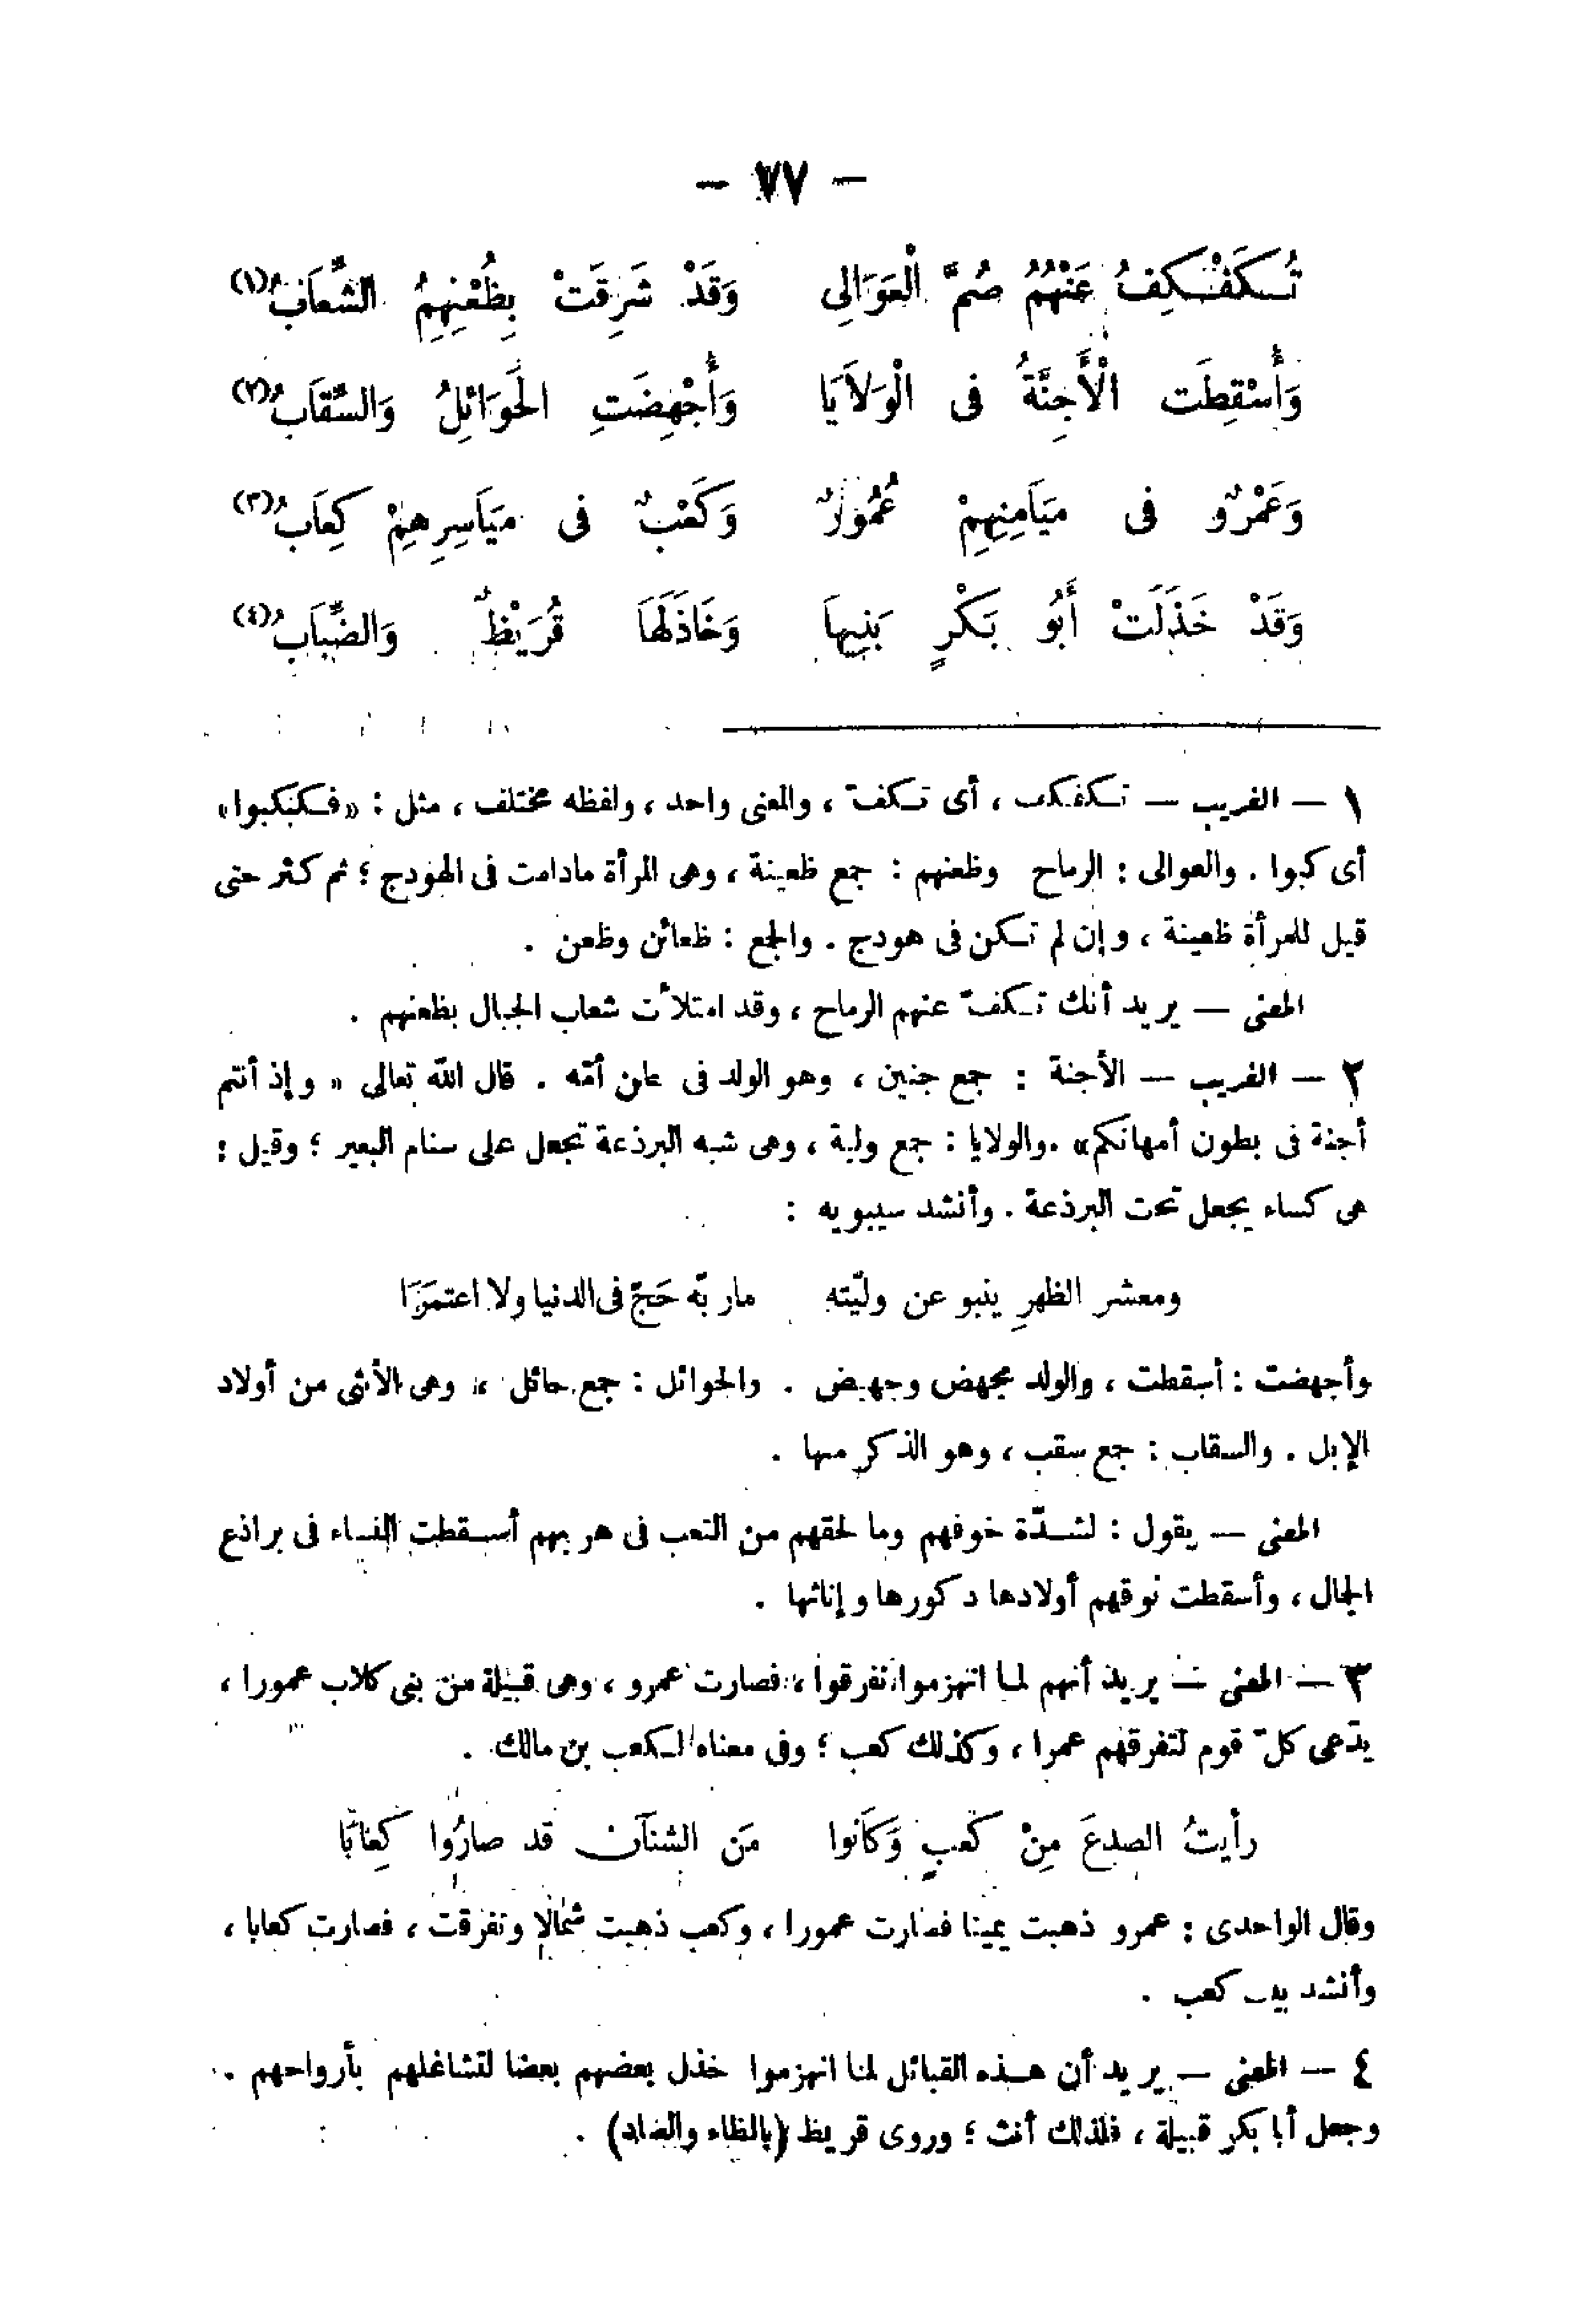 — ٧٧ —
تُكَفْكِفُ عَنْهُمُ صُمَّ الْعَوَالِى وَقَدْ شَرِقَتْ بِظُعْنِهِمُ الشِّعَابُ (١)
وَأُسْقِطَت الْأَجِنَّةُ فى الْوَلاَيَا وَأُجْهِضَتِ الحَوَائِلُ وَالسِّقَابُ (٢)
وَعَمْرٌو فى مَيَامِنِهِمْ عُمُورٌ وَكَعْبٌ فى مَيَاسِرِهِمْ كِعَابُ (٣)
وَقَدْ خَذَلَتْ أَبُو بَكْرٍ بَنِيهاَ وَخَاذَلَهَا قُرَيْظٌ وَالضِّبَابُ (٤)
١ — الغريب — تكفكف ، أى تكفّ ، والمعنى واحد ، ولفظه مختلف ، مثل : «فكبكبوا»
أى كبوا . والعوالى : الرماح وظعنهم : جمع ظعينة ، وهى المرأة مادامت فى الهودج ؛ ثم كثر حتى
قيل للمرأة ظعينة ، وإن لم تكن فى هودج . والجمع : ظعائن وظعن .
المعنى — يريد أنك تكفّ عنهم الرماح ، وقد امتلأت شعاب الجبال بظعنهم .
٢ — الغريب — الأجنة : جمع جنين ، وهو الولد فى بطن أمّه . قال الله تعالى « وإذ أنتم
أجنة فى بطون أمهاتكم» . والولايا : جمع ولية ، وهى شبه البرذعة تجعل على سنام البعير ؛ وقيل :
هى كساء يجعل تحت البرذعة . وأنشد سيبويه :
ومعشر الظهرِ ينبو عن وليّته ماربّه حَجّ فى الدنيا ولا اعتمَرَا
وأجهضت : أسقطت ، والولد مجهض وجهيض . والحوائل : جمع حائل ، وهى الأنثى من أولاد
الإبل . والسقاب : جمع سقب ، وهو الذكر منها .
المعنى — يقول : لشدّة خوفهم وما لحقهم من التعب فى هربهم أسقطت النساء فى براذع
الجمال ، وأسقطت نوقهم أولادها ذكورها وإناثها .
٣ — المعنى — يريد أنهم لما انهزموا تفرقوا ، فصارت عمرو ، وهى قبيلة من بنى كلاب عمورا ،
يدّعى كلّ قوم لتفرقهم عمرا ، وكذلك كعب ؛ وفى معناه لكعب بن مالك .
رأيتُ الصدعَ مِنْ كَعبٍ وَكاَنوا مَن الشنآن قد صارُوا كِعابًا
وقال الواحدى : عمرو ذهبت يمينا فصارت عمورا ، وكعب ذهبت شمالا وتفرقت ، فصارت كعابا ،
وأنشد بيت كعب .
٤ — المعنى — يريد أن هذه القبائل لما انهزموا خذل بعضهم بعضا لتشاغلهم بأرواحهم .
وجعل أبا بكر قبيلة ، فلذلك أنث ؛ وروى قريظ (بالظاء والضاد) .